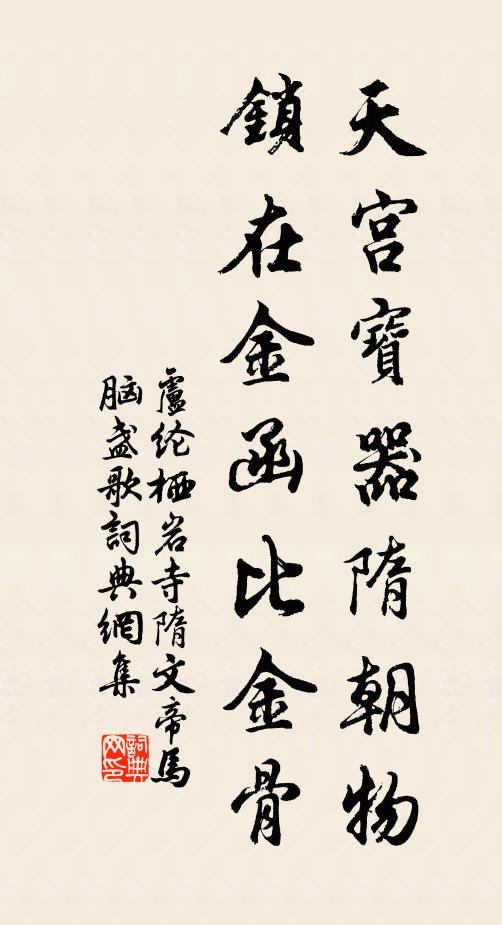 天宮寶器隋朝物
鎖在金函比金骨
盧纶栖岩寺隋文帝馬
脑盏歌詞典網集
詞典网印